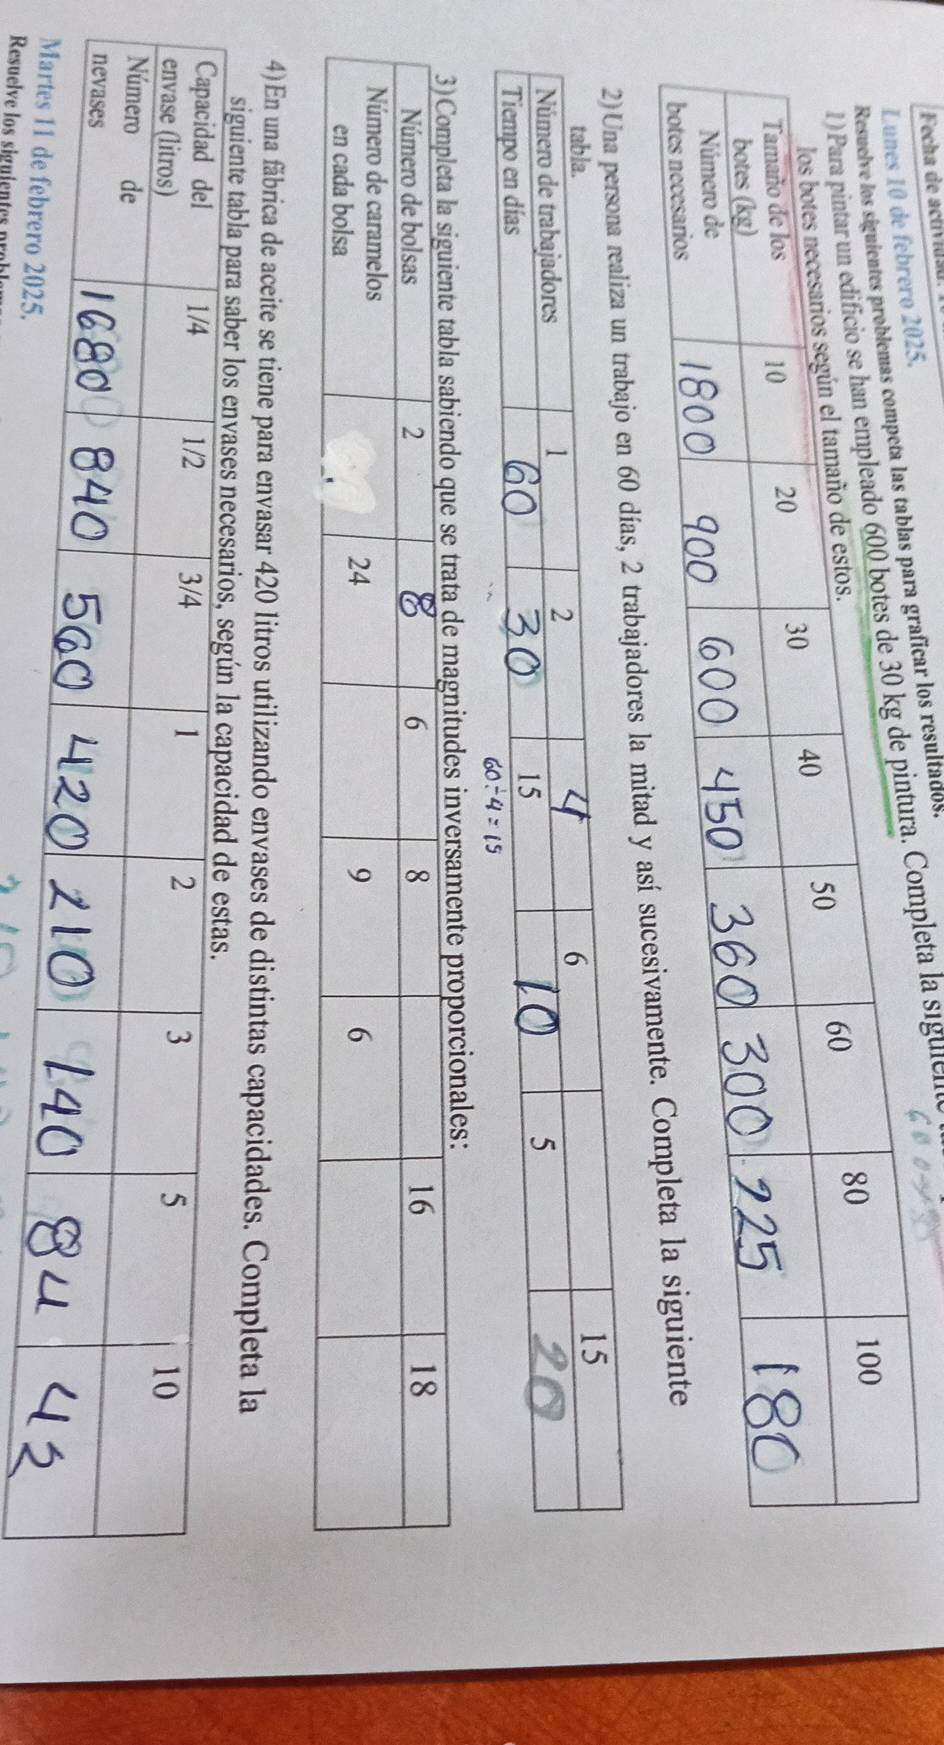 Fecha de
Lunes 10 de febrero 2025.
Resuelve los siguientes problemas competa las tablas para graficar los resultados.
1)Para pintar un edificio se han empleado 600 botes de 30 kg de pintura. Completa la siguiente
los botes necesarios según el tamaño de estos.
Tamaño de los botes (kg) 10 20 30 40 50 60 80 100
Número de botes necesarios 1800 900 600 450 360 300 225 180
2)Una persona realiza un trabajo en 60 días, 2 trabajadores la mitad y así sucesivamente. Completa la siguiente
tabla.
Número de trabajadores 1 2 4 6 15
Tiempo en días 60 30 15 10 5 20
60÷4=15
3)Completa la siguiente tabla sabiendo que se trata de magnitudes inversamente proporcionales:
Número de bolsas 2 8 6 8 16 18
Número de caramelos en cada bolsa 24 9 6
4)En una fábrica de aceite se tiene para envasar 420 litros utilizando envases de distintas capacidades. Completa la
siguiente tabla para saber los envases necesarios, según la capacidad de estas.
Capacidad del envase (litros) 1/4 1/2 3/4 1 2 3 5 10
Número de nevases 1680 840 560 420 210 140 84 42
Martes 11 de febrero 2025.
Resuelve los siguientes